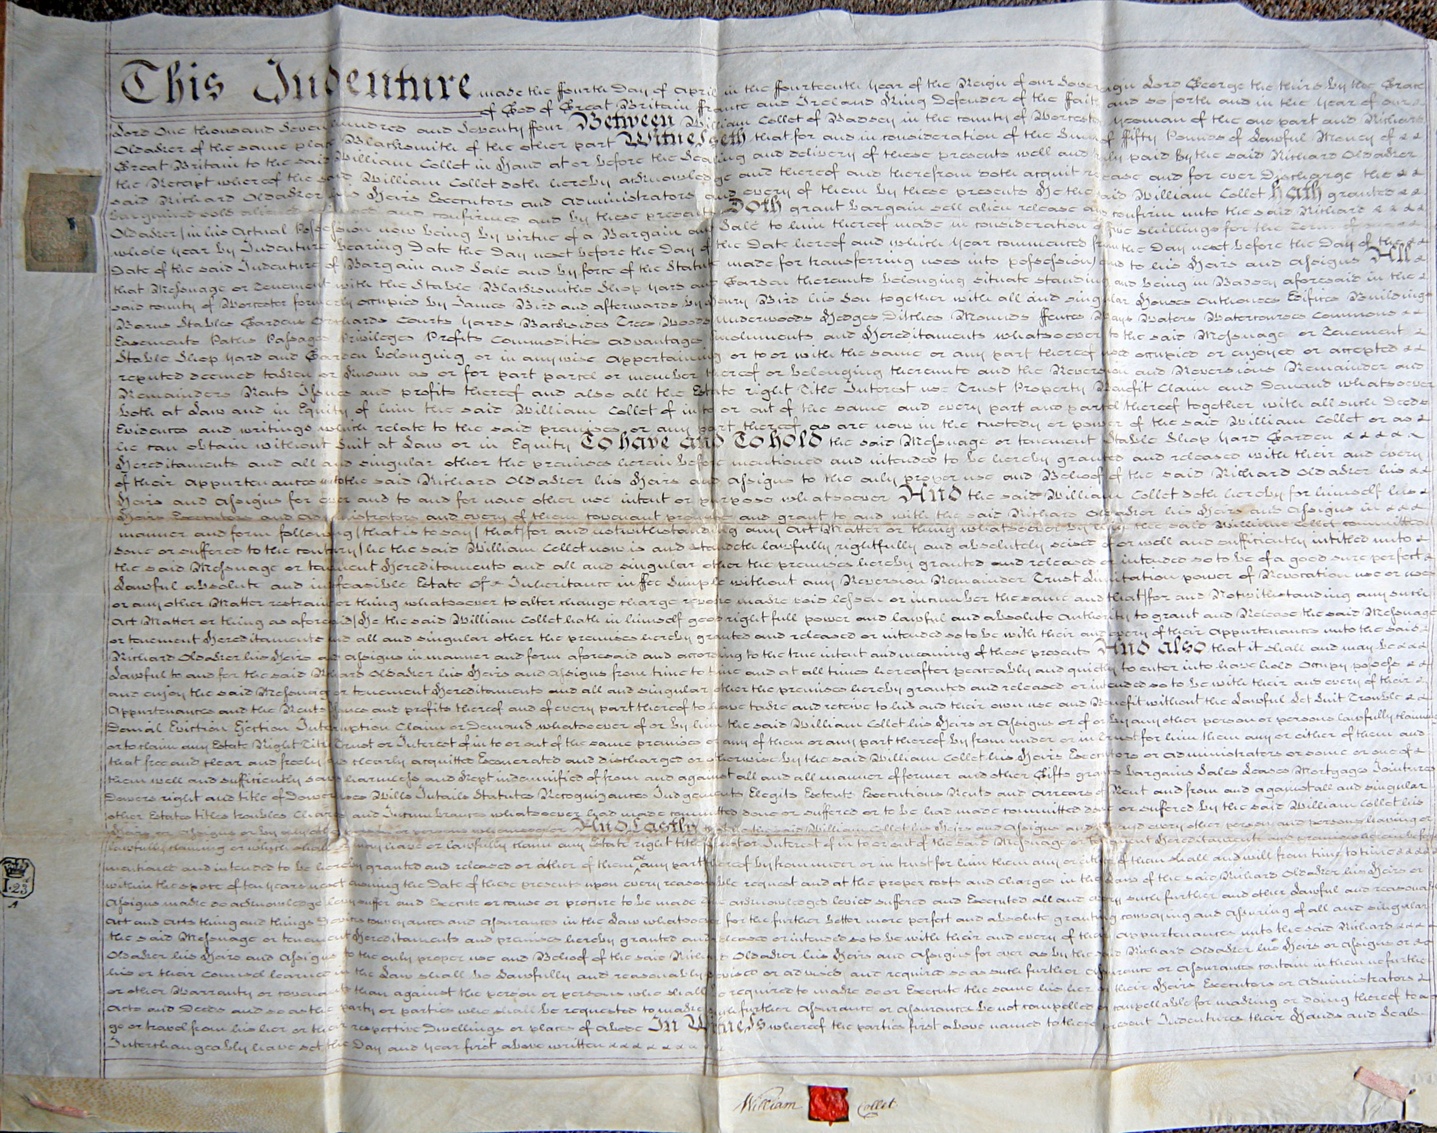 This Indenture made the ffourth Day of April in the ffourteenth Year of the Reign of our Sovereign Lord George the third by the Grace
of God of Great Britain ffrance and Ireland King Defender of the ffaith and so forth and in the Year of our
Lord One thousand Seven hundred and Seventy ffour Between William Collet of Badsey in the County of Worcester Yeoman of the one part and Richard
Oldaker of the same place Blacksmith of the other part Witnesseth that for and in consideration of the Sum of ffifty Pounds of Lawful Money of
Great Britain to the said William Collet in Hand at or before the Sealing and delivery of these presents well and truly paid by the said Richard Oldaker
the Receipt whereof the said William Collet doth hereby acknowledge and thereof and therefrom doth acquit release and for ever Discharge the
said Richard Oldaker his Heirs Executors and Administrators and every of them by these presents He the said William Collet Hath granted
bargained sold and confirmed and by these presents Doth grant bargain sell alien release and confirm unto the said Richard
Oldaker (in his Actual Possession now being by virtue of a Bargain and Sale to him thereof made in consideration of ffive shillings for the Term of
whole year by Indenture bearing Date the Day next before the Day of the Date hereof and which Year commenced from the Day next before the Day of the
Date of the said Indenture of Bargain and Sale and by force of the Statute made for transferring uses into possession) and to his Heirs and Assigns All
that Messuage or Tenement with the Stable Blacksmiths Shop Yard and Garden thereunto belonging situate standing and being in Badsey aforesaid in the
said County of Worcester formerly occupied by James Bird and afterwards by Henry Bird his Son together with all and singular Houses Outhouses Edifices Buildings
Barns Stables Gardens Orchards Courts Yards Backsides Trees Woods Underwoods Hedges Ditches Mounds ffences Ways Waters Watercourses Commons
Easements Paths Passages Privileges Profits Commodities advantages Emoluments and Hereditaments whatsoever to the said Messuage or Tenement
Stable Shop Yard and Garden belonging or in anywise Appertaining or to or with the same or any part thereof used occupied or enjoyed or accepted
reputed deemed taken or Known as or for part parcel or member thereof or belonging thereunto and the Reversion and Reversions Remainder and
Remainders Rents Issues and profits thereof and also all the Estate right Title Interest use Trust Property Benefit Claim and Demand whatsoever
both at Law and in Equity of him the said William Collet of in to or out of the same and every part and parcel thereof together with all such Deeds
Evidences and writings which relate to the said premises or any part thereof as are now in the custody or power of the said William Collet or as
he can obtain without Suit at Law or in Equity To have and To hold the said Messuage or tenement Stable Shop Yard Garden
Hereditaments and all and singular other the premises herein before mentioned and intended to be hereby granted and released with their and every
of their Appurtenances unto the said Richard Oldaker his Heirs and Assigns to the only proper use and Behoof of the said Richard Oldaker his
Heirs and Assigns for ever and to and for none other use intent or purpose whatsoever And the said William Collet doth hereby for himself his
Heirs Executors and Administrators and every of them covenant promise and grant to and with the said Richard Oldaker his Heirs and Assigns in
manner and form following (that is to say) that for and notwithstanding any Act Matter or thing whatsoever by the said William Collet committed
done or suffered to the contrary he the said William Collet now is and standeth lawfully rightfully and absolutely seized of or well and sufficiently intitled unto
the said Messuage or tenement Hereditaments and all and singular other the premises hereby granted and released or intended so to be of a good sure perfect
Lawful absolute and indefeasible Estate of Inheritance in ffee Simple without any Reversion Remainder Trust Limitation power of Revocation use or uses
or any other Matter restraint or thing whatsoever to alter change charge revoke make void lessen or incumber the same and that for and Notwithstanding any such
Act Matter or thing as aforesaid He the said William Collet hath in himself good right full power and lawful and absolute Authority to grant and Release the said Messuage
or tenement Hereditaments and all and singular other the premises hereby granted and released or intended so to be with their and every of their Appurtenances unto the said
Richard Oldaker his Heirs and Assigns in manner and form aforesaid and according to the true intent and meaning of these presents And also that it shall and may be
Lawful to and for the said Richard Oldaker his Heirs and Assigns from time to time and at all times hereafter peaceably and quietly to enter into have hold Occupy possess
and enjoy the said Messuage or tenement Hereditaments and all and singular other the premises hereby granted and released or intended so to be with their and every of their
Appurtenances and the Rents Issues and profits thereof and of every part thereof to have take and receive to his and their own use and Benefit without the Lawful Let Suit Trouble
Denial Eviction Ejection Interruption Claim or Demand whatsoever of or by him the said William Collet his Heirs or Assigns or of or by any other person or persons lawfully claiming
or to claim any Estate Right Title Trust or Interest of in to or out of the same premises or any of them or any part thereof by from under or in trust for him them any or either of them and
that free and clear and freely and clearly acquitted Exonerated and discharged or otherwise by the said William Collet his Heirs Executors or Administrators or some or one of
them well and sufficiently saved harmless and Kept indemnified of from and against all and all manner of former and other Gifts grants bargains Sales Leases Mortgages Jointures
Dowers right and title of Dower uses Wills Intails Statutes Recognizances Judgments Elegits Extents Executions Rents and Arrears of Rent and from and against all and singular
other Estates titles troubles Charges and Incumbrances whatsoever had made committed done or suffered or to be had made committed done or suffered by the said William Collet his
Heirs or Assigns or by any other person or persons whomsoever And Lastly that he the said William Collet his Heirs and Assigns and every other person and persons having or
lawfully claiming or which shall or may have or lawfully claim any Estate right title Trust or Interest of in to or out of the said Messuage or tenement Hereditaments
mentioned and intended to be hereby granted and released or either of them or any part thereof by from under or in trust for him them any or either of them shall and will from time to time
within the space of ten years next ensuing the date of these presents upon every reasonable request and at the proper costs and charges in the Law of the said Richard Oldaker his Heirs or
Assigns make do acknowledge levy suffer and Execute or cause or procure to be made done acknowledged levied suffered and Executed all and every such further and other Lawful and reasonable
Act and Acts thing and things Devices conveyances and Assurances in the Law whatsoever for the further better more perfect and absolute granting conveying and assuring of all and singular
the said Messuage or tenement Hereditaments and premises hereby granted and released or intended so to be with their and every of their appurtenances unto the said Richard
Oldaker his Heirs and Assigns to the only proper use and Behoof of the said Richard Oldaker his Heirs and Assigns for ever as by the said Richard Oldaker his Heirs or Assigns or
his or their Counsel learned in the Law shall be Lawfully and reasonably devised or advised and required so as such further Assurance or Assurances contain in them no further
or other Warranty or covenants than against the person or persons who shall be required to make do or Execute the same his her or their Heirs Executors or Administrators
Acts and Deeds and so as the party or parties who shall be requested to make such further Assurance or Assurances be not compelled or compellable for making or doing thereof to
go or travel from his her or their respective Dwellings or places of abode In Witness whereof the parties first above named to these present Indentures their Hands and Seals
Interchangeably have set the Day and Year first above written
1.23
William Collet